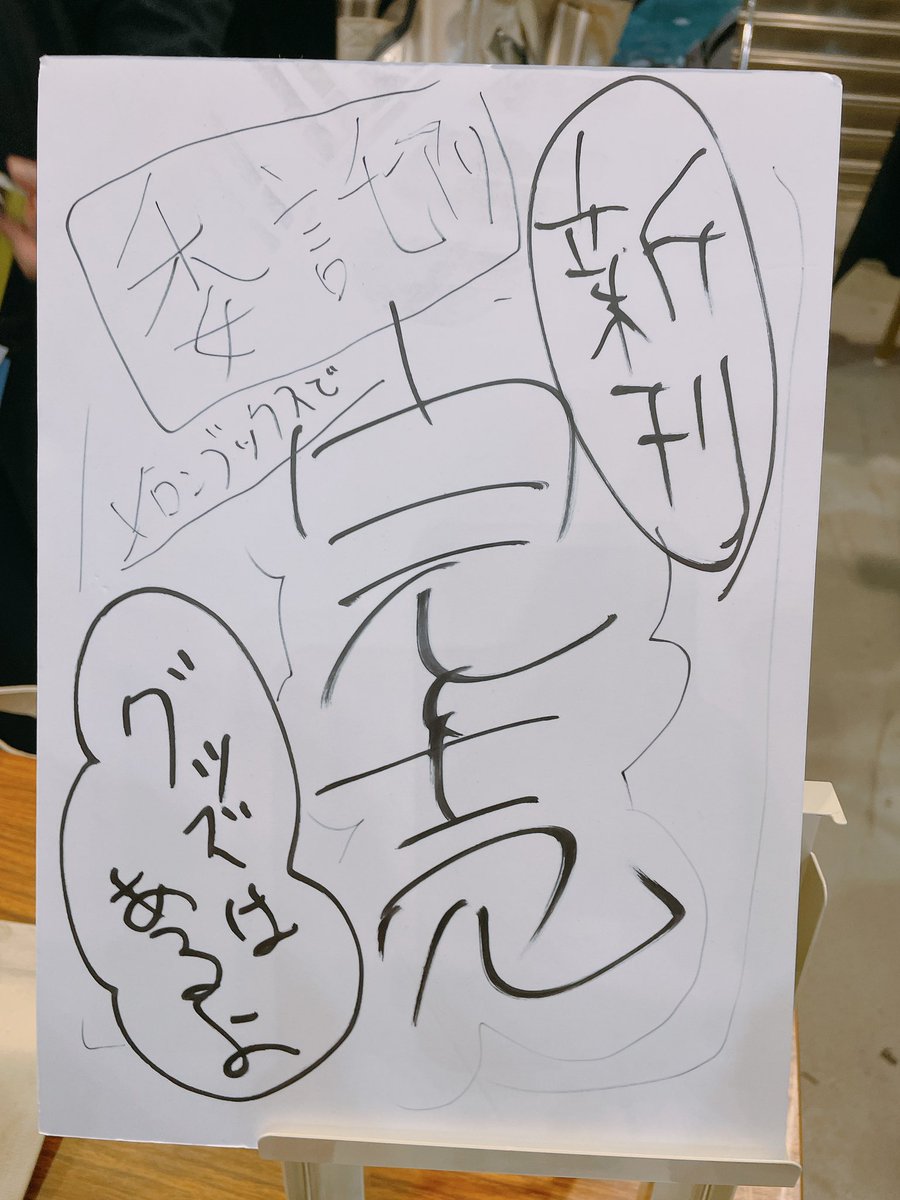 委託アリ
メロンブックスで
完売
グッズは
あるよ